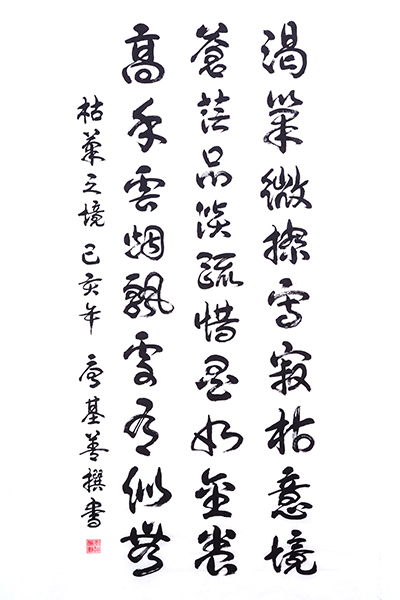 渴筆微擦寫寂枯意境
蒼茫品淡疏惜墨如金
高手雲烟飄處有似無
枯筆之境 己亥年 唐基善撰書